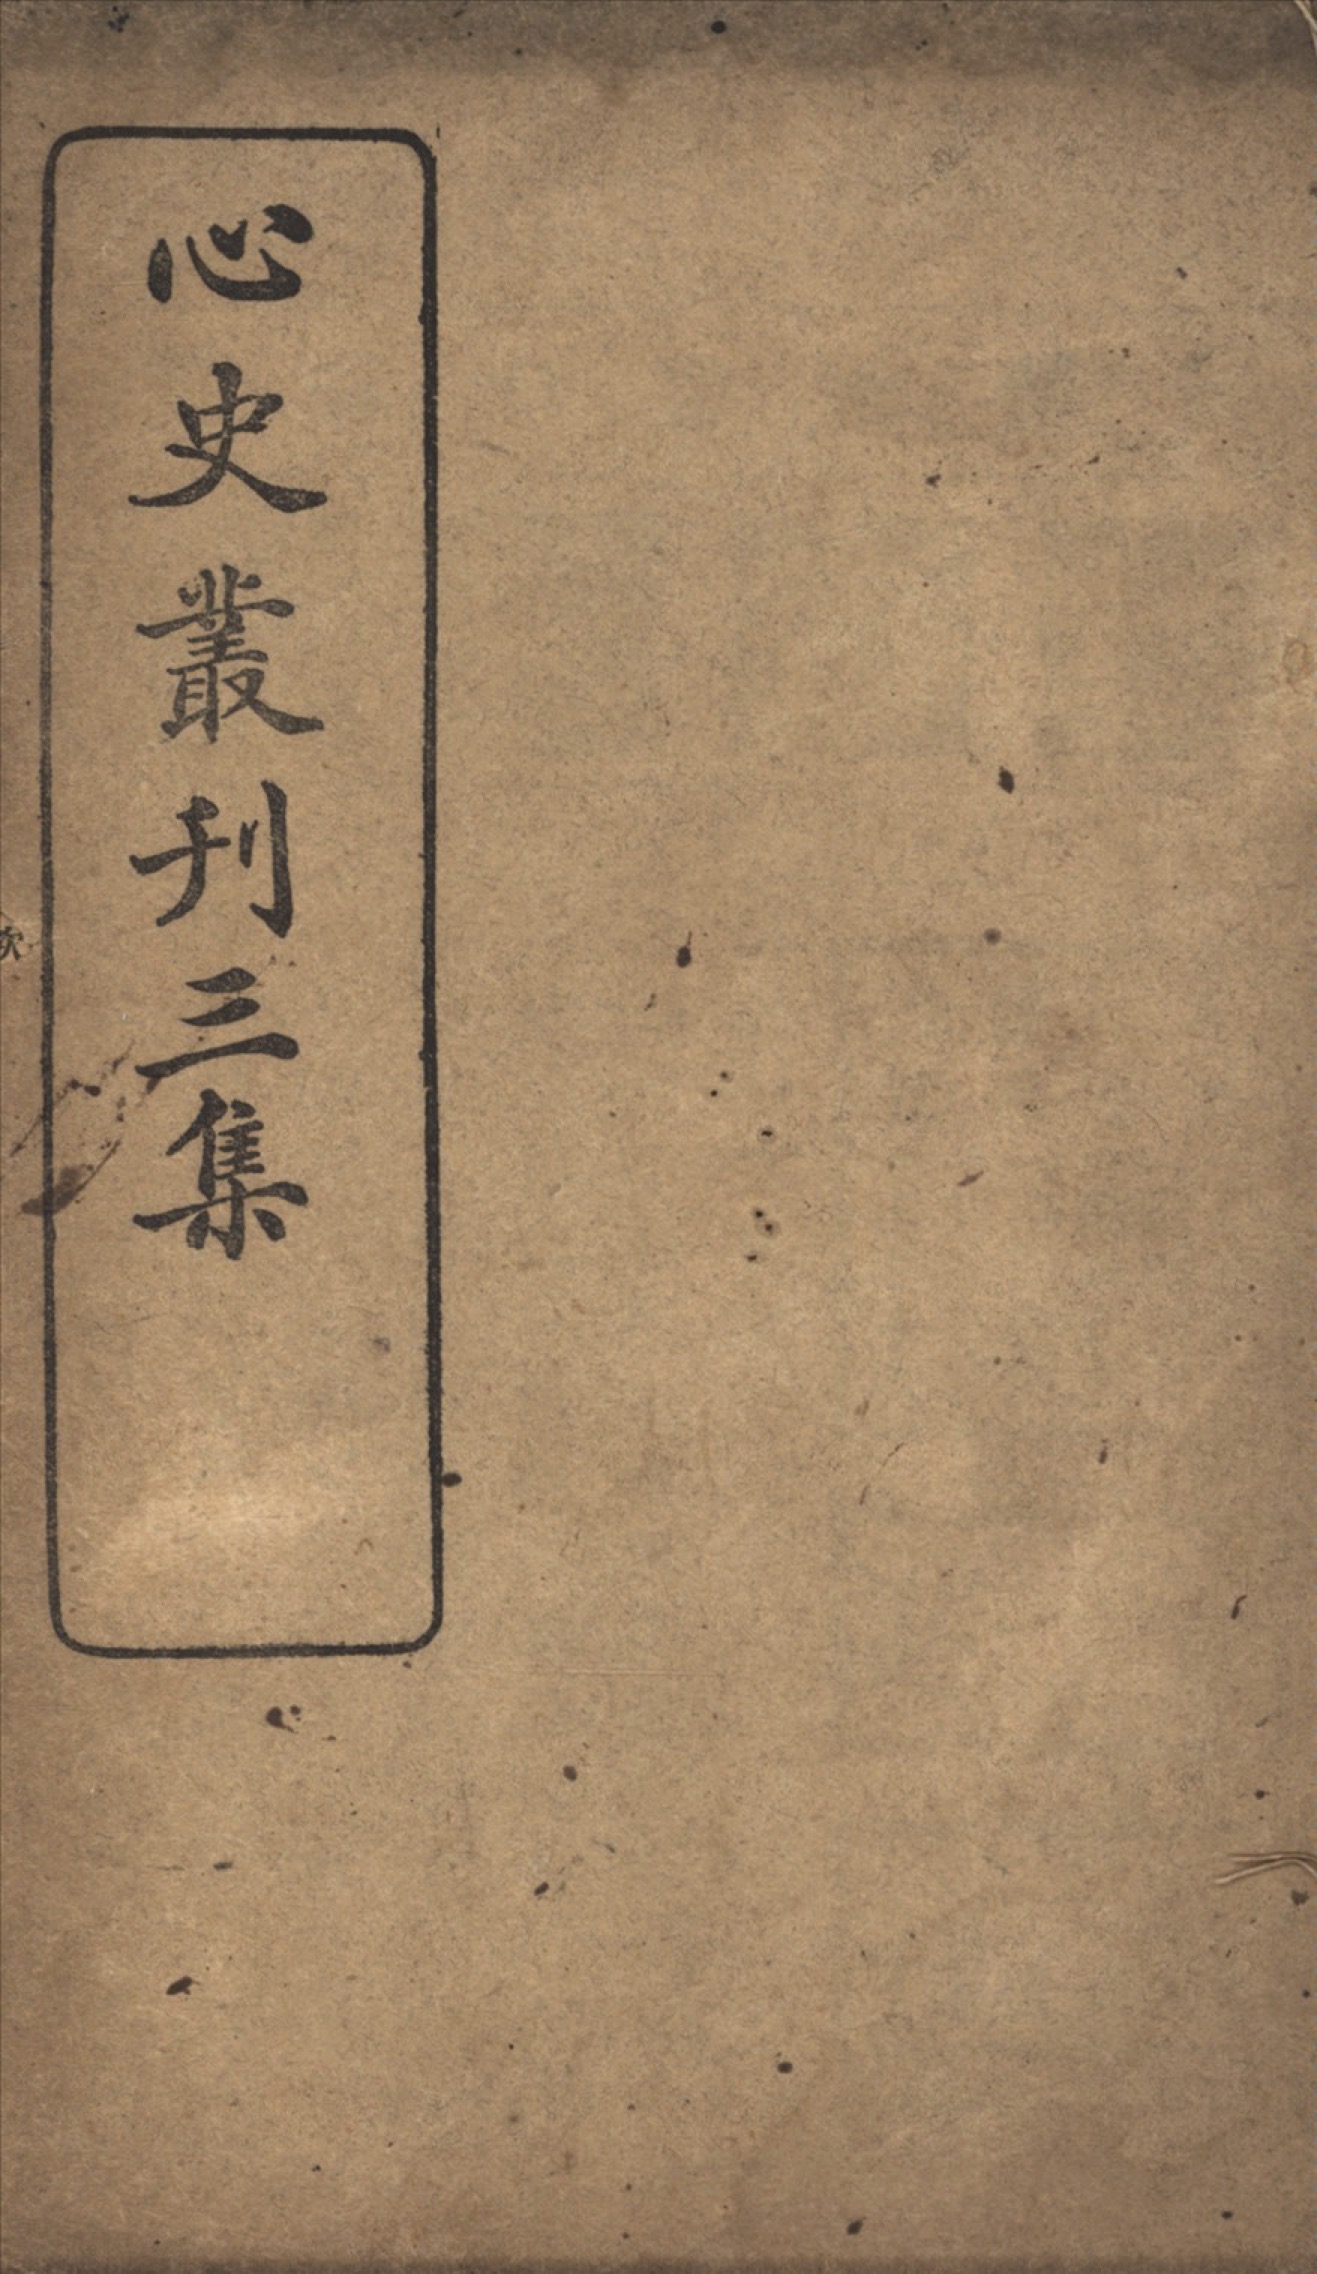 心史叢刊三集